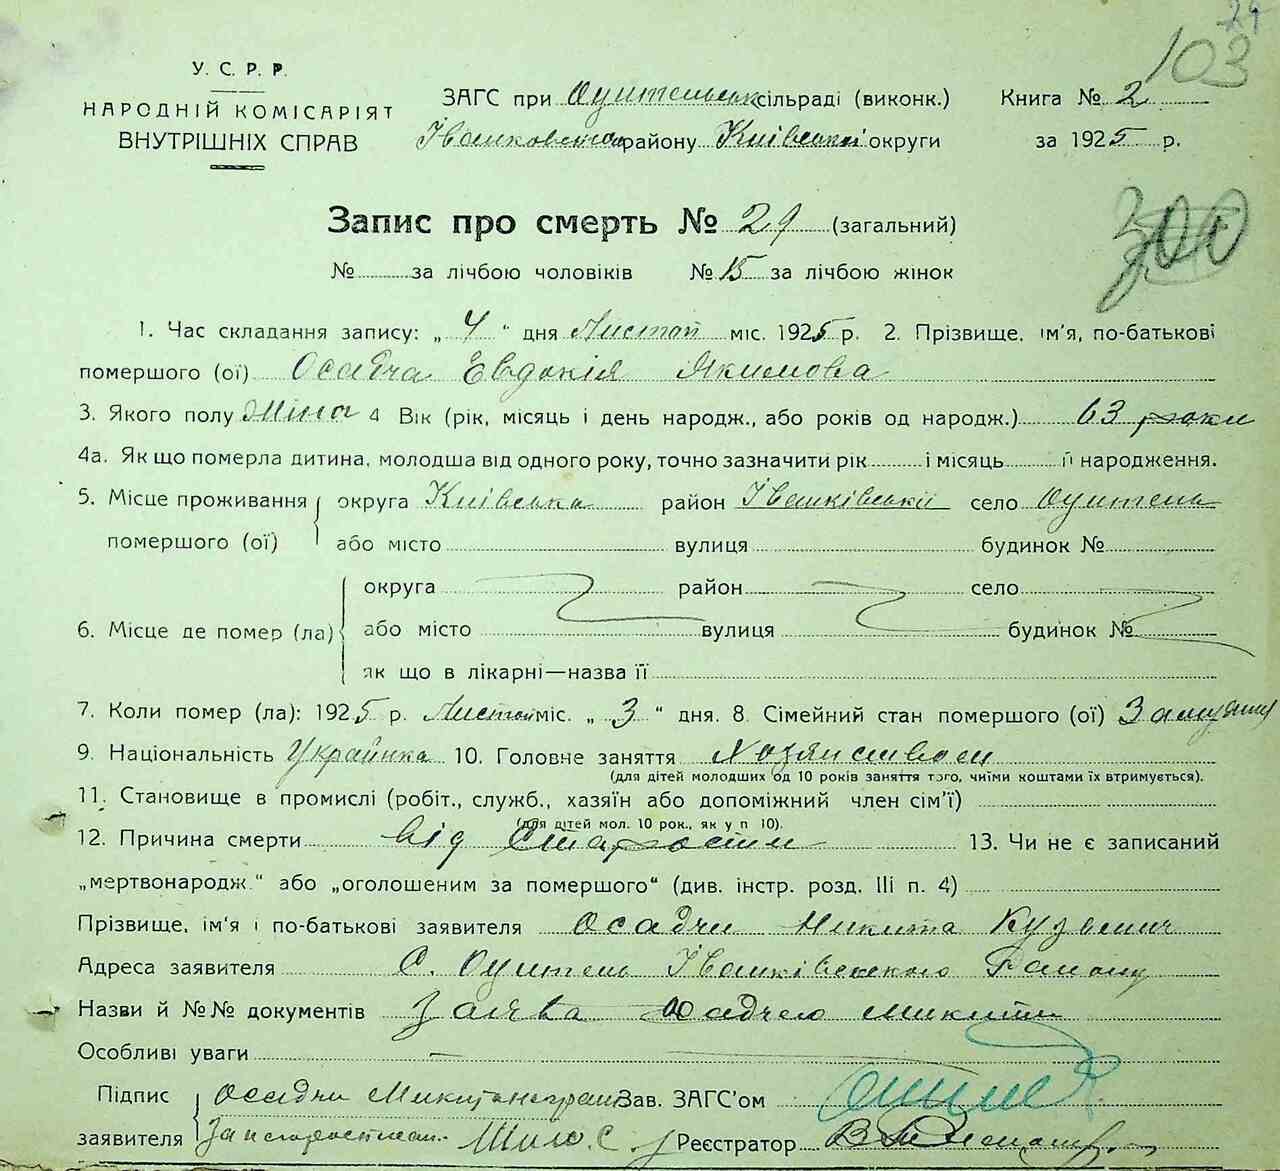 103
У. С. Р. Р.
НАРОДНІЙ КОМІСАРІЯТ
ВНУТРІШНІХ СПРАВ
ЗАГС при сільраді (виконк.) Книга № 2
району Київської округи за 1925 р.
300
Запис про смерть № 29 (загальний)
№ за лічбою чоловіків № 15 за лічбою жінок
1. Час складання запису: „ 4 “ дня Листоп міс. 1925 р. 2. Прізвище, ім'я, по-батькові
помершого (ої) Осадча Евдокія Якимова
3. Якого полу Жіно 4 Вік (рік, місяць і день народж., або років од народж.) 63 роки
4а. Як що померла дитина, молодша від одного року, точно зазначити рік і місяць її народження.
5. Місце проживання округа Київська район село
помершого (ої) або місто вулиця будинок №
округа район село
6. Місце де помер (ла) або місто вулиця будинок №
як що в лікарні—назва її
7. Коли помер (ла): 1925 р. Листоп міс. „ 3 “ дня. 8. Сімейний стан помершого (ої)
9. Національність Українка 10. Головне заняття
(для дітей молодших од 10 років заняття того, чиїми коштами їх втримується).
11. Становище в промислі (робіт., служб., хазяїн або допоміжний член сім'ї)
(для дітей мол. 10 рок., як у п 10).
12. Причина смерти від Старости 13. Чи не є записаний
„мертвонародж.“ або „оголошеним за помершого“ (див. інстр. розд. III п. 4)
Прізвище, ім'я і по-батькові заявителя Осадчи Никита Кузьмич
Адреса заявителя С.
Назви й №№ документів Заява Осадчего Микити
Особливі уваги —
Підпис Осадчи Зав. ЗАГС'ом
заявителя Реєстратор